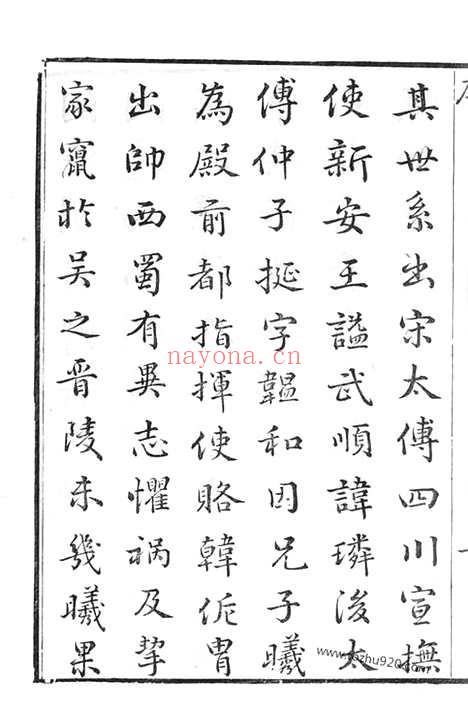 其世系出宋太傅四川宣撫
使新安王謚武順諱璘後太
傅仲子挺字韞和因兄子曦
為殿前都指揮使賂韓侂胄
出帥西蜀有異志懼禍及挈
家竄於吳之晋陵未幾曦果
nayona.cn